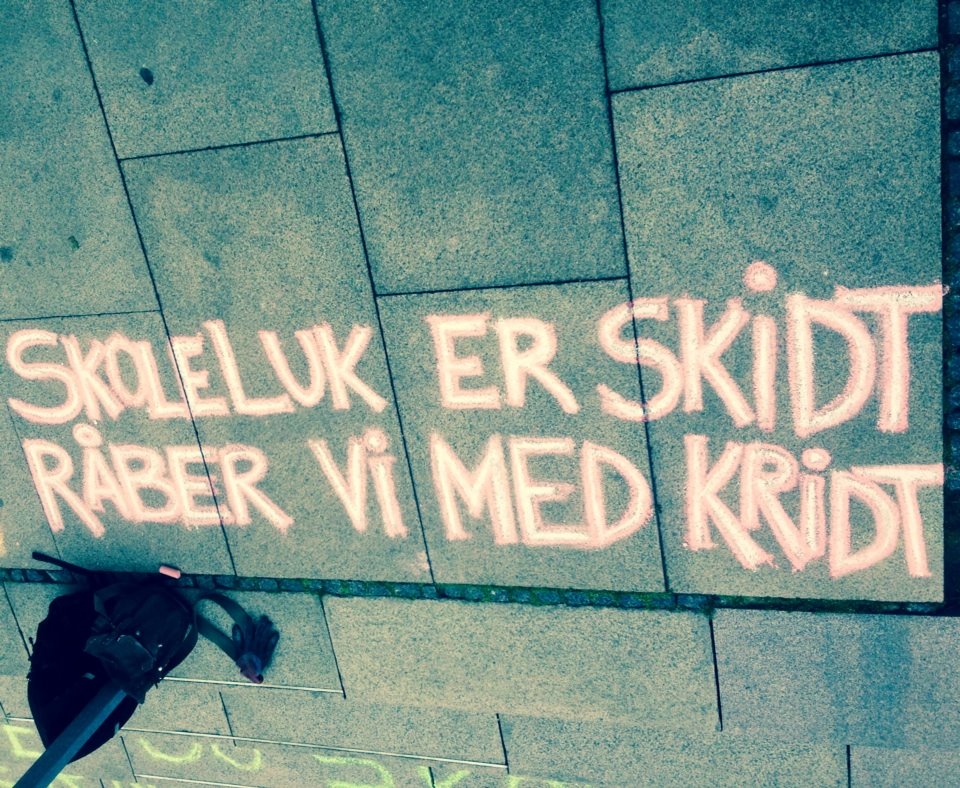 SKOLELUK ER SKiDT
RÅBER Vi MED KRiDT